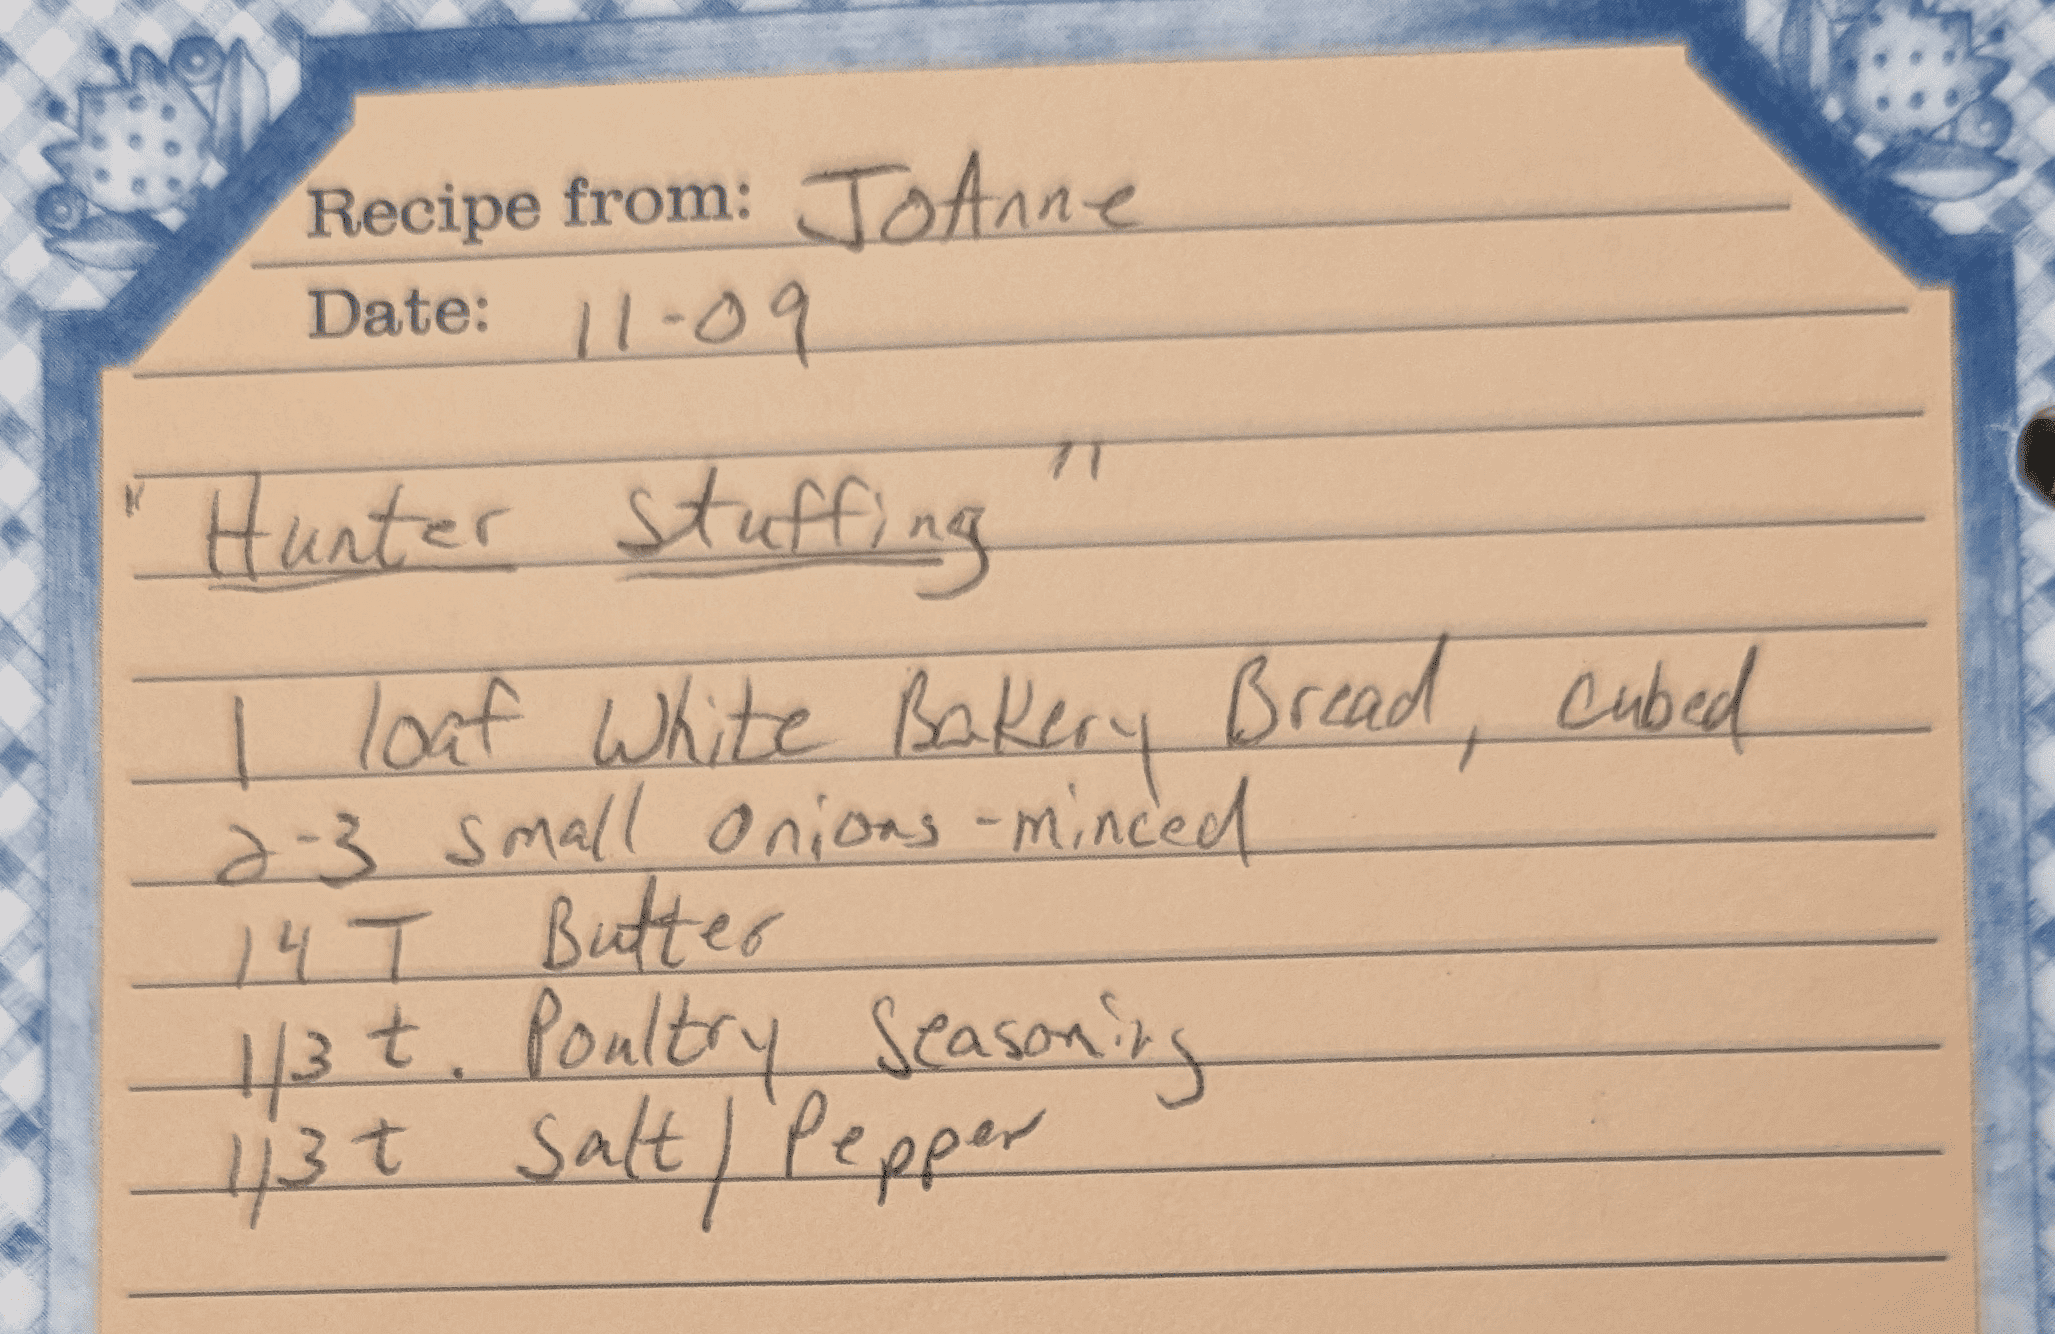 Recipe from: JoAnne
Date: 11-09
"Hunter Stuffing"
1 loaf White Bakery Bread, cubed
2-3 small onions - minced
14 T Butter
1/3 t. Poultry Seasoning
1/3 t Salt/Pepper